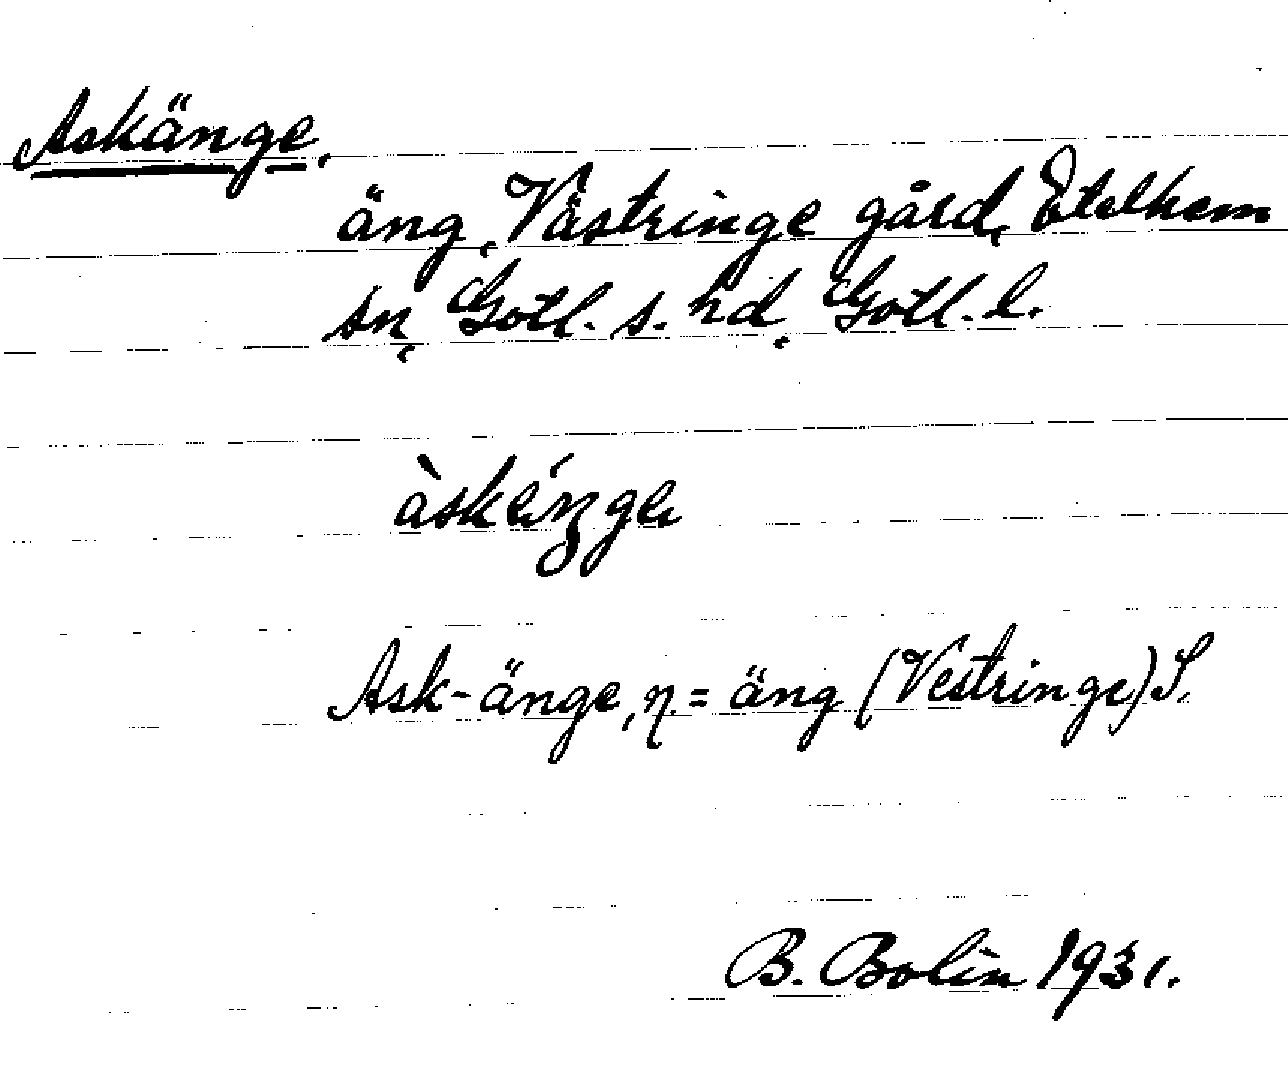 Askänge.
äng, Västringe gård, Etelhem
sn, Gotl. s. hd, Gotl. l.
àskéŋge
Ask-änge, n. = äng (Vestringe) S.
B. Bolin 1931.